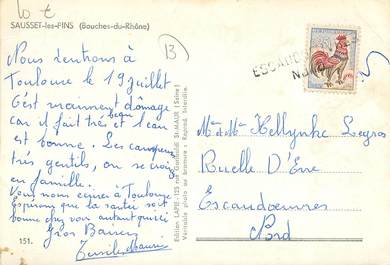 10 €
SAUSSET-les-PINS (Bouches-du-Rhône)
13
Nous rentrons à
Toulouse le 19 juillet
C'est vraiment dômage
car il fait très beau et l'eau
est bonne. Les campeurs
très gentils, on se croirait
en famille.
Vous nous écrirez à Toulouse
Espérons que la santé soit
bonne chez vous autant qu'ici
Gros Baisers
151.
Edition LAPIE - 125 rue Garibaldi St-MAUR (Seine)
Véritable photo au bromure - Reprod. Interdite.
ESCAUDOEUVRES
NORD
Mr et Mme Legros
Ruelle D'Erre
Escaudoeuvres
Nord